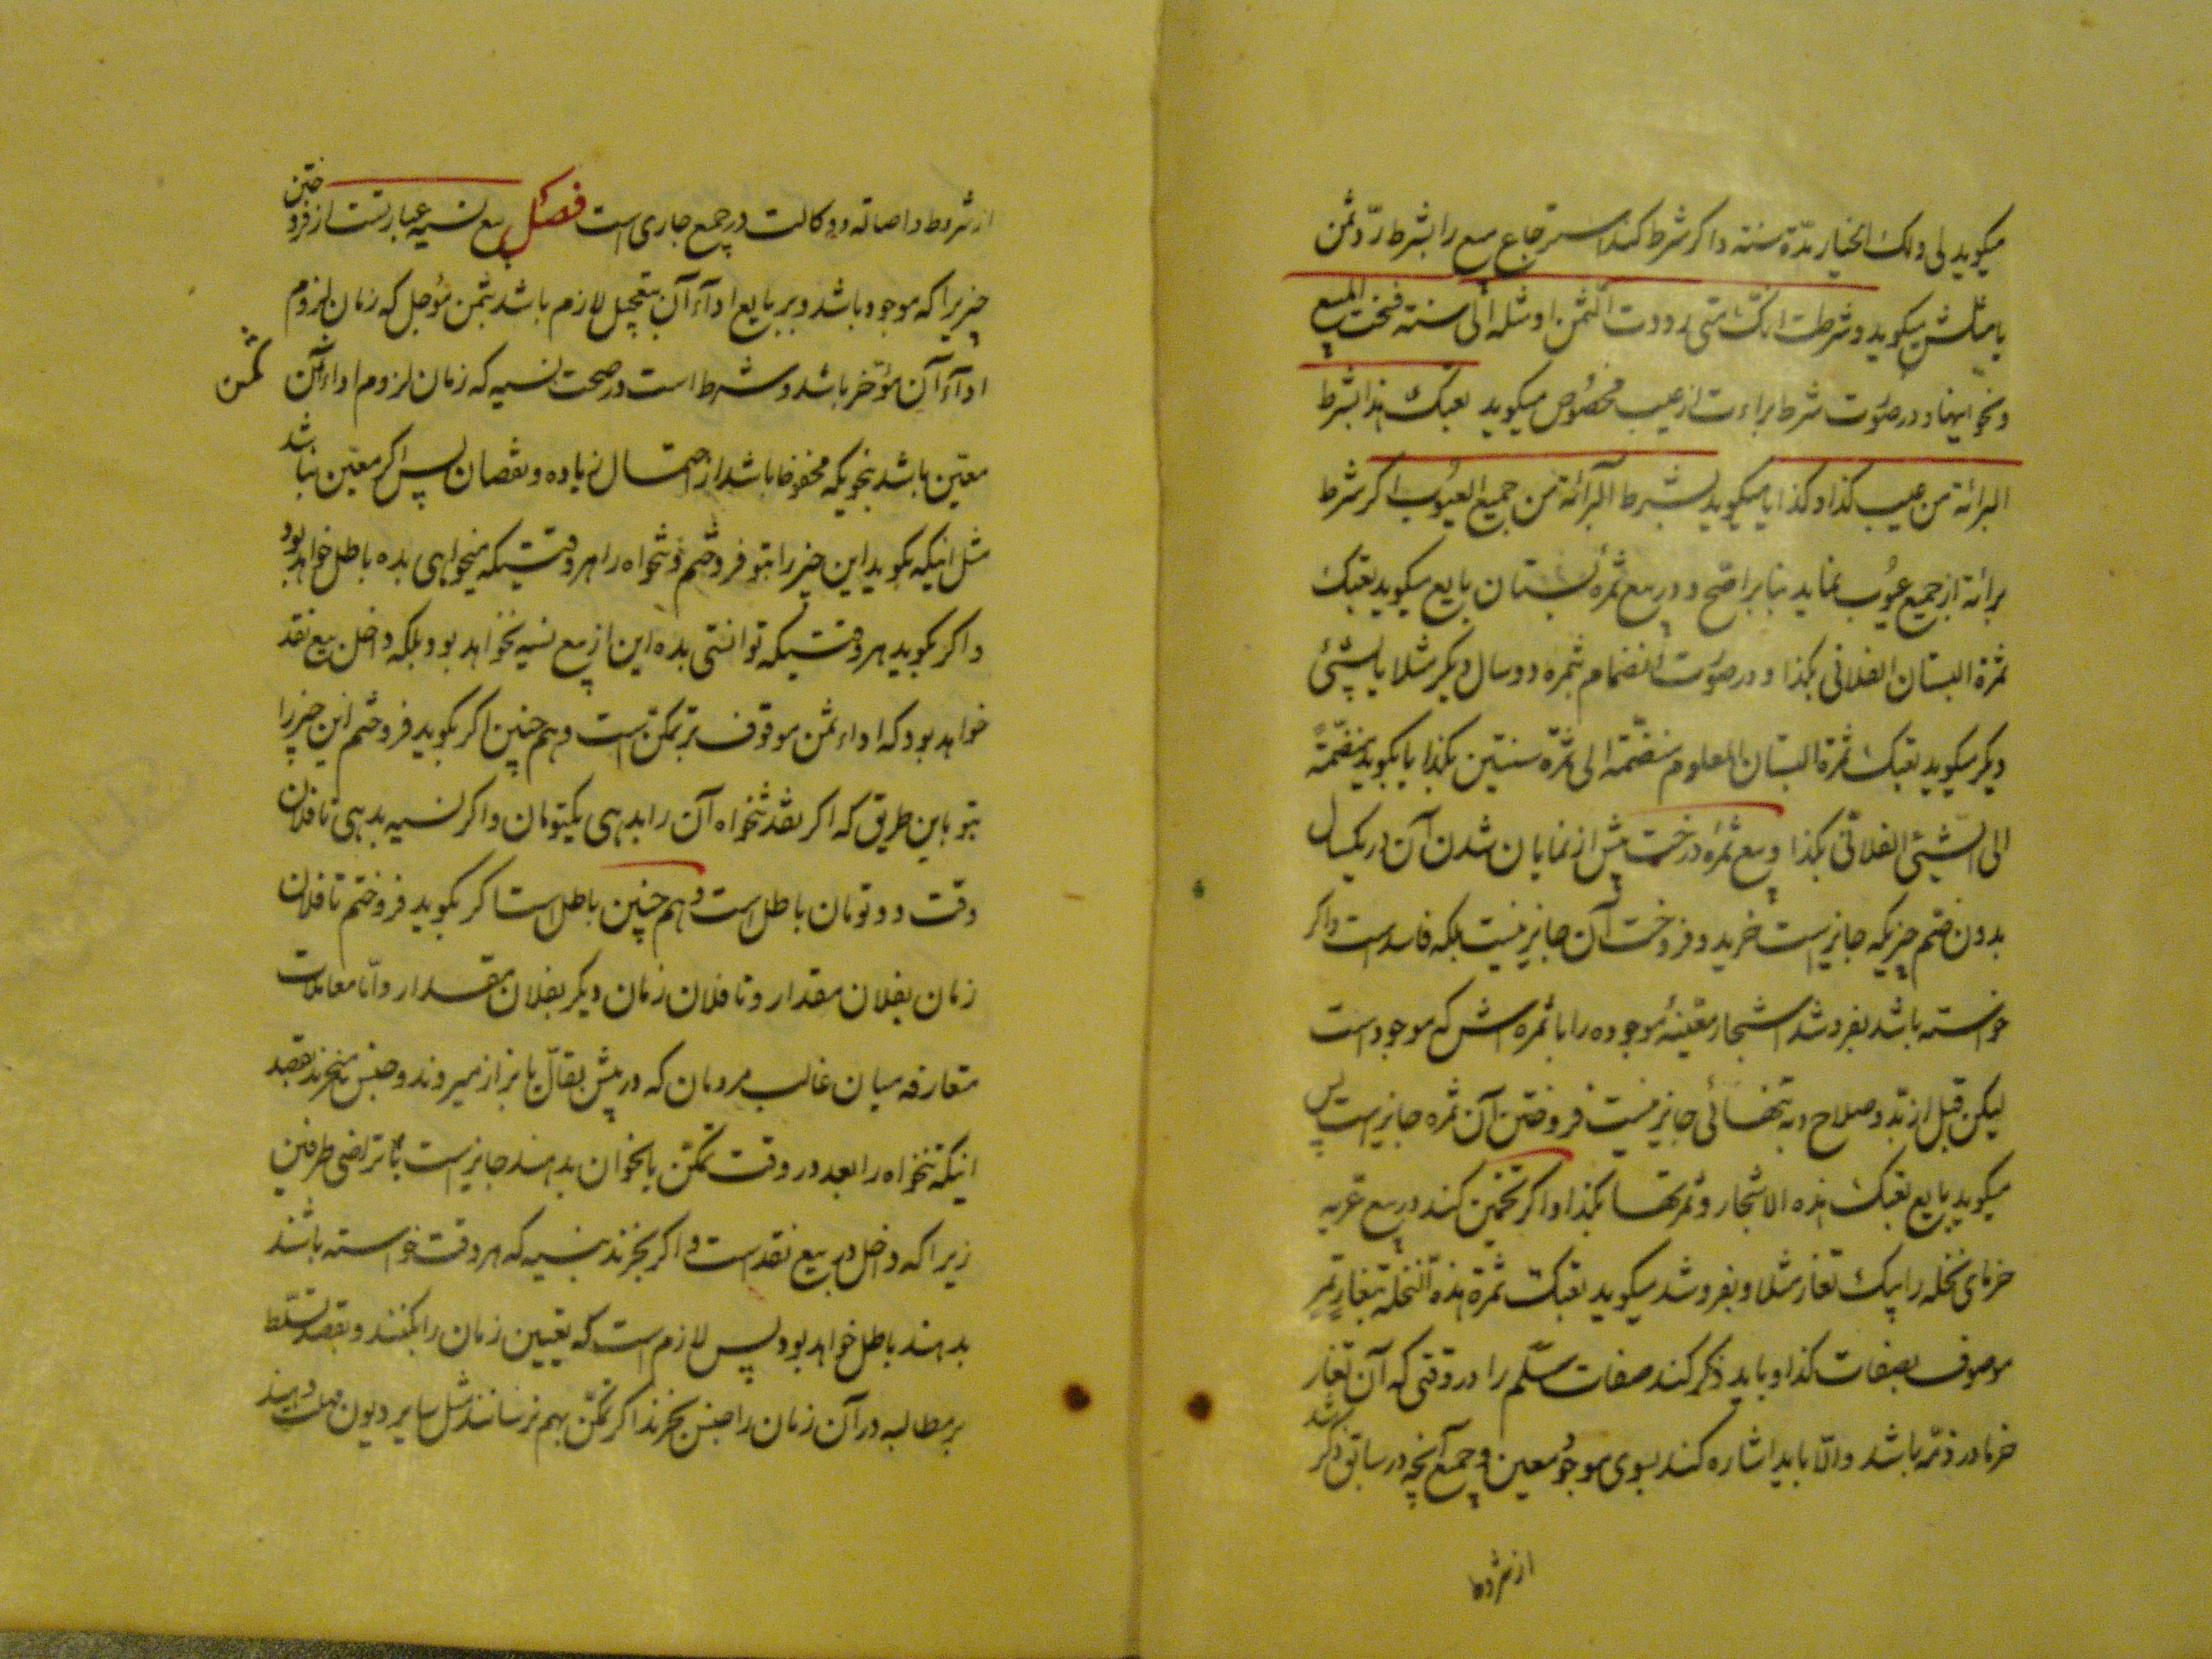 میکوید لی ولک الخیار مدّة سنته واکر شرط کند استرجاع مبیع را بشرط ردّ ثمن
یا مثلش میکوید وشرطت انک متی رددت الثمن او مثله الی سنته فسخت البیع
ونحو اینها ودر صوُت شرط براءت از عیب مخصُوص میکوید بعتک هذا بشرط
البرائة من عیب کذا وکذا یا میکوید بشرط البرائة من جمیع العیوُب اکر شرط
برائة از جمیع عیوُب نماید بنابر اصّح ودر بیع ثمره بُستان بایع میکوید بعتک
ثمرة البستان الفلانی بکذا ودر صوُت انضمام بثمره دو سال دیکر مثلا یا بشیئ
دیکر میکوید بعتک ثمرة البستان المعلوم منضّمة الی ثمرة سنتین بکذا یا بکوید منضّمةً
الی الشیئ الفلانی بکذا وبیع ثمره درخت پیش از نمایان شدن آن در یکسال
بدون ضم چیزیکه جایز است خرید وفروخت آن جایز نیست بلکه فاسد است واکر
خواسته باشد بفروشد اشجار معّینهٔ موجوده را با ثمره اش که موجود است
لیکن قبل از بدّو صلاح وبه تنهائی جایز نیست فروختن آن ثمره جایز است پس
میکوید بایع بعتک هذه الاشجار وثمرتها بکذا واکر تخمین کند در بیع عَریه
خرمای نخله را بیک تغار مثلا وبفروشد میکوید بعتک ثمرة هذه النخلة بتغار تمرٍ
موصوف بصفات کذا وباید ذکر کند صفات سلّم را در وقتی که آن تغار
خرما در ذمّه باشد والاّ باید اشاره کند بسوی موجوُد معین وجمیع آنچه در سابق ذکر شد
از شروط
از شروط واصالة ووکالت در جمیع جاری است فصل بیع نسیه عبارتست از فروختن
چیزیرا که موجود باشد وبر بایع اداء آن بتعجیل لازم باشد بثمن مؤجل که زمان لزوم
اداء آن مؤخّر باشد وشرط است در صحت نسیه که زمان لزوم اداء آن ثمن
معیّن باشد بنحویکه محفوظ باشد از احتمال زیاده ونقصان پس اکر معیّن نباشد
مثل اینکه بکوید این چیز را بتو فروختم وتنخواه را هر وقتیکه میخواهی بده باطل خواهد بود
واکر بکوید هر وقتیکه توانستی بده این از بیع نسیه نخواهد بود بلکه داخل بیع نقد
خواهد بود که اداء ثمن موقوف بر تمکن است وهم چنین اکر بکوید فروختم این چیز را
بتو باین طریق که اکر بنقد تنخواه آن را بدهی یکتومان واکر نسیه بدهی تا فلان
وقت دو تومان باطل است وهم چنین باطل است اکر بکوید فروختم تا فلان
زمان بفلان مقدار وتا فلان زمان دیکر بفلان مقدار وامّا معاملات
متعارفه میان غالب مردمان که در پیش بقاّل یا بزاز میروند وجنس میخرند بقصد
اینکه تنخواه را بعد در وقت تمکّن باخوان بدهند جایز است با تراضی طرفین
زیرا که داخل در بیع نقد است واکر بخرند بنسیه که هر وقت خواسته باشند
بدهند باطل خواهد بود پس لازم است که تعیین زمان را بکنند وبقصد تسلّط
بر مطالبه در آن زمان را جنس بخرند اکر تمکّن بهم نرسانند مثل سایر دیون مهلت دهند